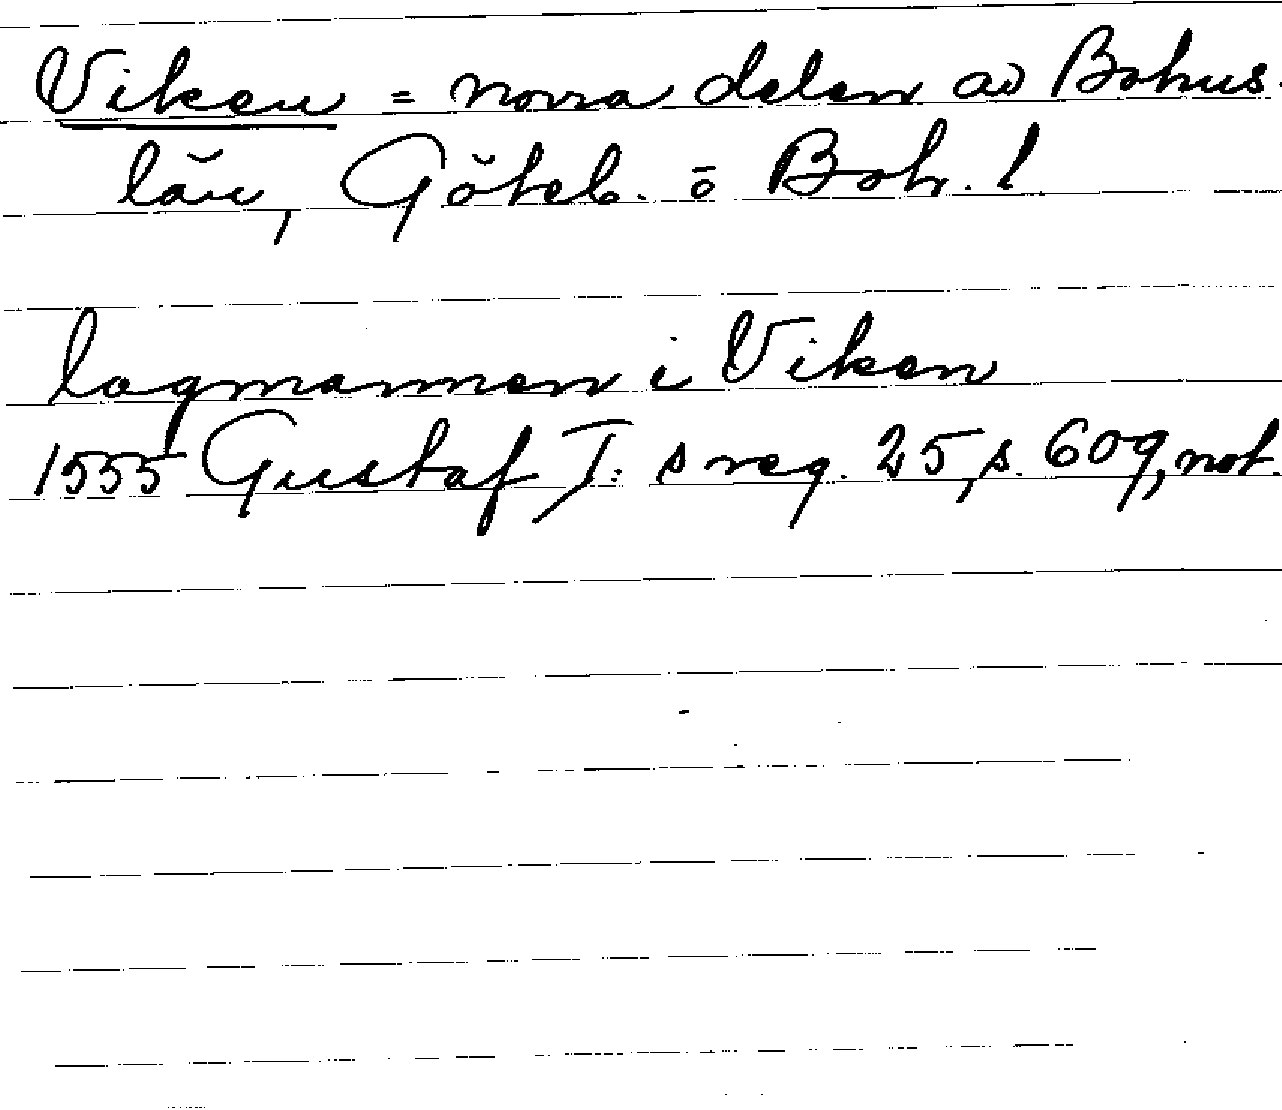 Viken = norra delen av Bohus-
län, Göteb. o Boh. l.
lagmannen i Viken
1555 Gustaf I:s reg. 25, s. 609, not.